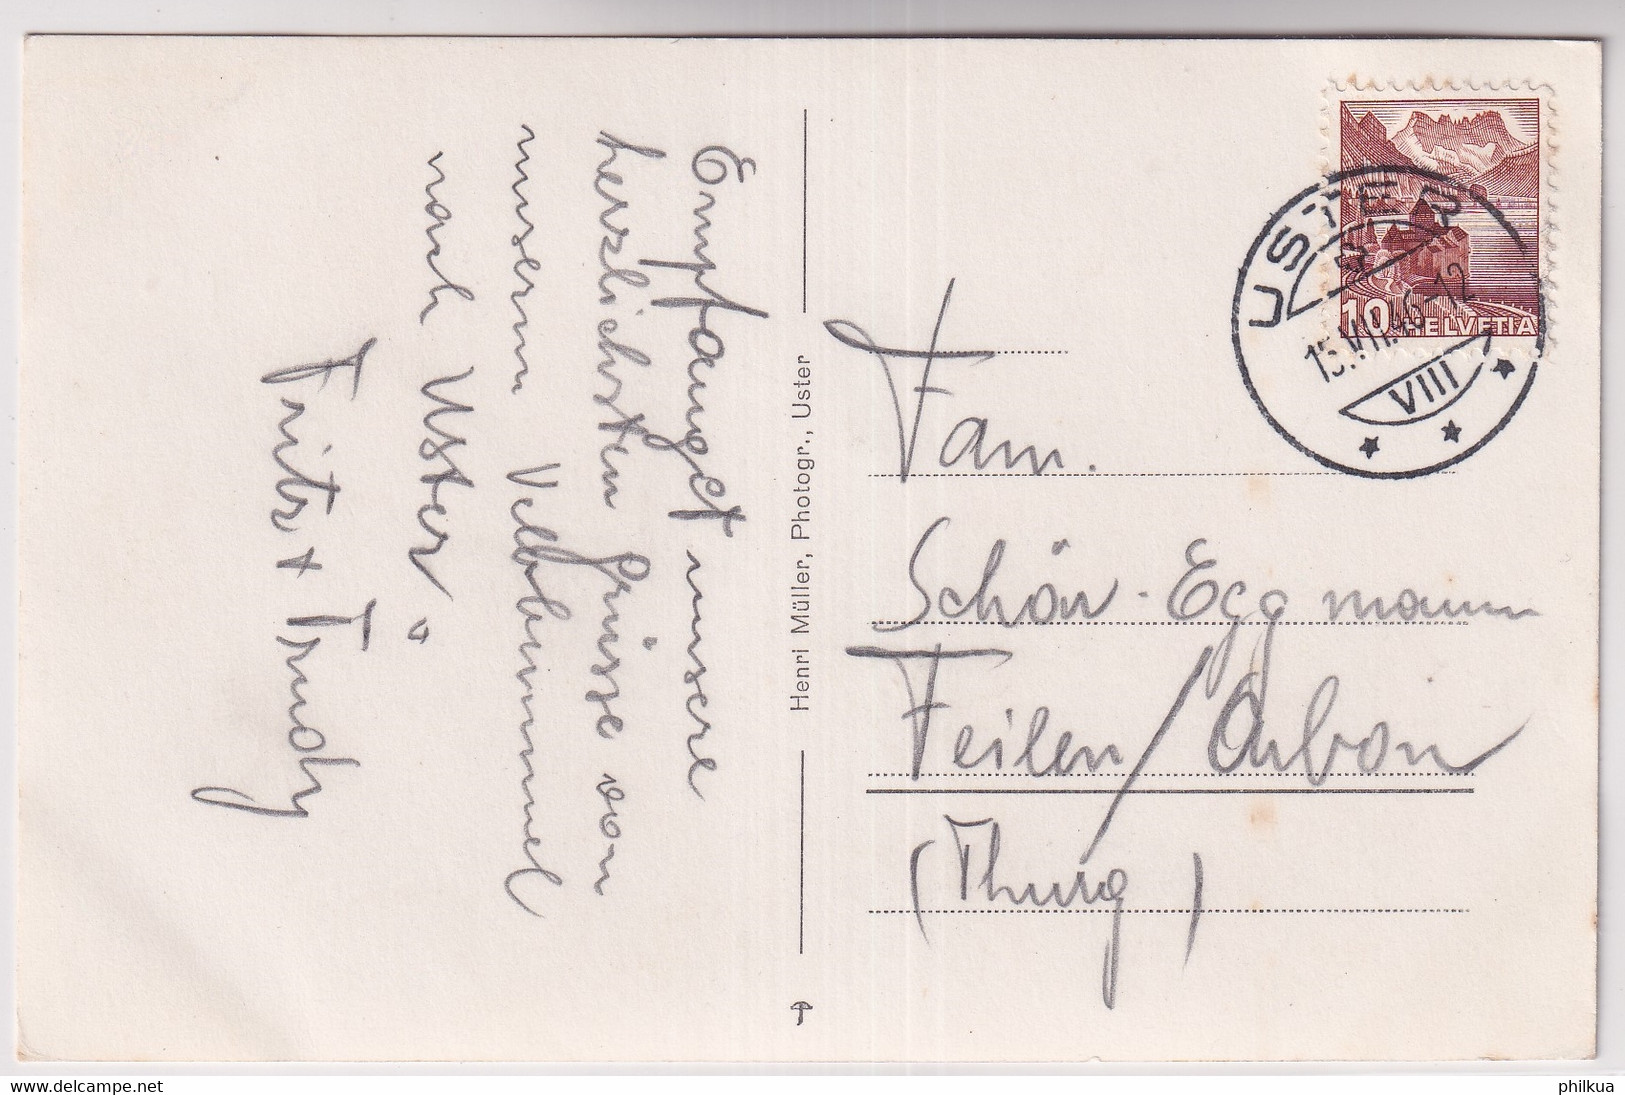 Empfanget unsere
herzlichsten Grüsse von
unserm Velobummel
nach Uster.
Fritz + Trudy
Henri Müller, Photogr., Uster
10 HELVETIA
USTER
15.VII.46-12
VIII
Fam.
Schär-Eggmann
Feilen/Arbon
(Thurg)
www.delcampe.net
philkua